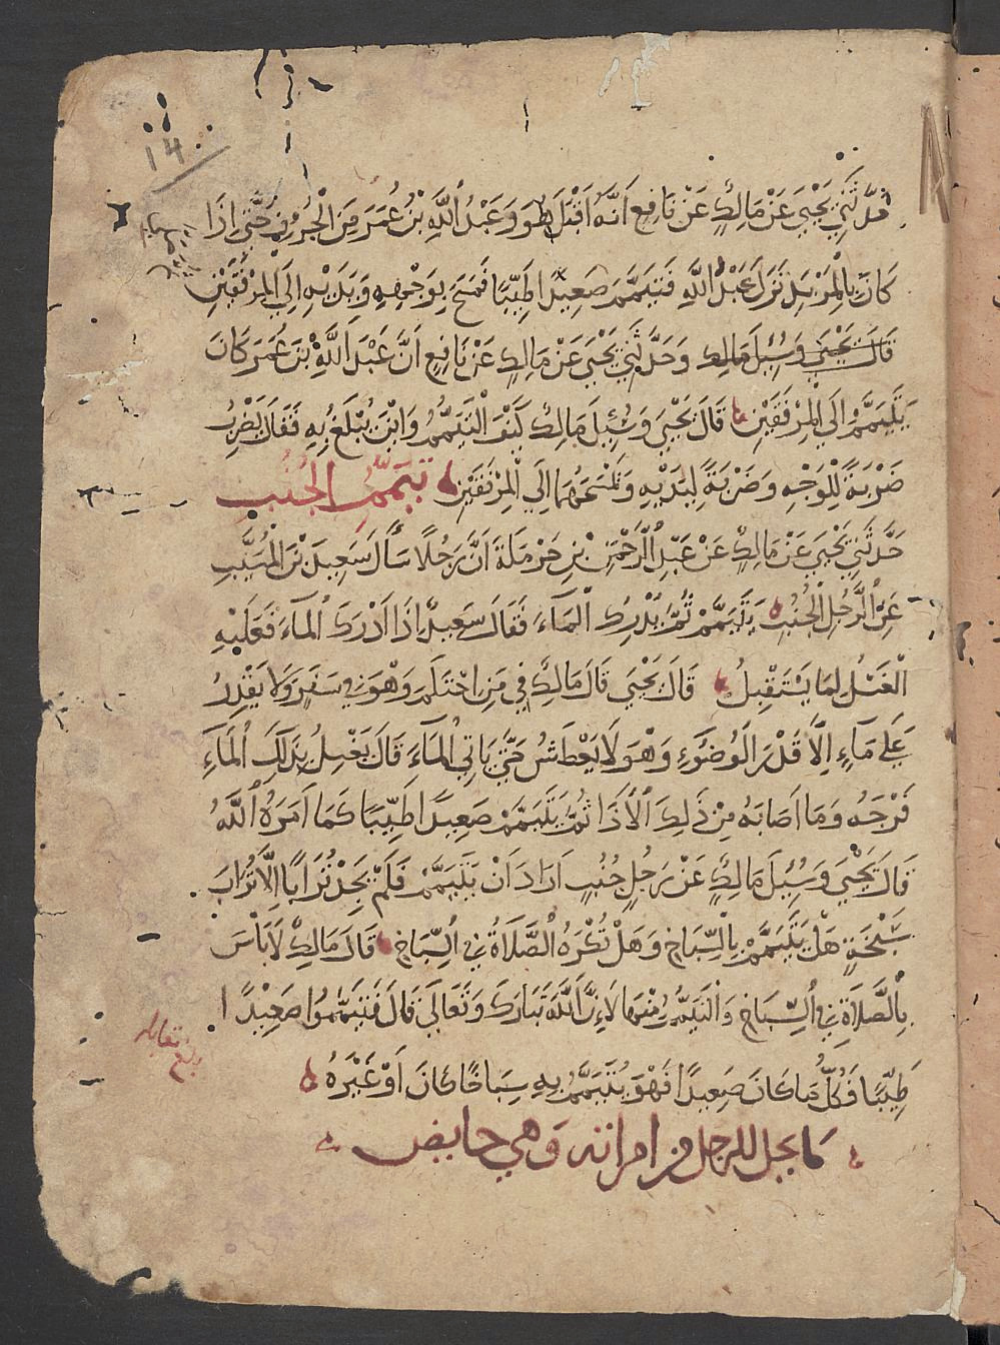 ١٤
حَدَّثَنِي يَحْيَى عَنْ مَالِكٍ عَنْ نَافِعٍ أَنَّهُ أَقْبَلَ هُوَ وَعَبْدُ اللَّهِ بْنُ عُمَرَ مِنَ الْجُرُفِ حَتَّى إِذَا
كَانَ بِالْمِرْبَدِ نَزَلَ عَبْدُ اللَّهِ فَتَيَمَّمَ صَعِيدًا طَيِّبًا فَمَسَحَ بِوَجْهِهِ وَيَدَيْهِ إِلَى الْمِرْفَقَيْنِ
قَالَ يَحْيَى وَسُئِلَ مَالِك وَحَدَّثَنِي يَحْيَى عَنْ مَالِكٍ عَنْ نَافِعٍ أَنَّ عَبْدَ اللَّهِ بْنَ عُمَرَ كَانَ
يَتَيَمَّمُ إِلَى الْمِرْفَقَيْنِ قَالَ يَحْيَى وَسُئِلَ مَالِكٌ كَيْفَ الْتَيَمُّمُ وَأَيْنَ يُبْلَغُ بِهِ فَقَالَ يَضْرِبُ
ضَرْبَةً لِلْوَجْهِ وَضَرْبَةً لِيَدَيْهِ وَيَمْسَحُهُمَا إِلَى الْمِرْفَقَيْنِ تَيَمُّمُ الْجُنُبِ
حَدَّثَنِي يَحْيَى عَنْ مَالِكٍ عَنْ عَبْدِ الرَّحْمَنِ بْنِ حَرْمَلَةَ أَنَّ رَجُلًا سَأَلَ سَعِيدَ بْنَ الْمُسَيَّبِ
عَنِ الرَّجُلِ الْجُنُبِ يَتَيَمَّمُ ثُمَّ يُدْرِكُ الْمَاءَ فَقَالَ سَعِيدٌ إِذَا أَدْرَكَ الْمَاءَ فَعَلَيْهِ
الْغَسْلُ لِمَا يَسْتَقْبِلُ قَالَ يَحْيَى قَالَ مَالِكٌ فِي مَنِ احْتَلَمَ وَهْوَ فِي سَفَرٍ وَلَا يَقْدِرُ
عَلَى مَاءٍ إِلَّا قَدْرَ الْوُضُوءِ وَهْوَ لَا يَعْطَشُ حَتَّى يَاتِي الْمَاءَ قَالَ يَغْسِلُ بِذَلِكَ الْمَاءِ
فَرْجَهُ وَمَا أَصَابَهُ مِنْ ذَلِكَ الْأَذَا ثُمَّ يَتَيَمَّمُ صَعِيدًا طَيِّبًا كَمَا أَمَرَهُ اللَّهُ
قَالَ يَحْيَى وَسُئِلَ مَالِكٌ عَنْ رَجُلٍ جُنُبٍ أَرَادَ أَنْ يَتَيَمَّمَ فَلَمْ يَجِدْ تُرَابًا إِلَّا تُرَابَ
سَبْخَةٍ هَلْ يَتَيَمَّمُ بِالسِّبَاخِ وَهَلْ تُكْرَهُ الصَّلَاةُ فِي السِّبَاخِ قَالَ مَالِكٌ لَا بَاسَ
بِالصَّلَاةِ فِي السِّبَاخِ وَالْتَيَمُّمُ مِنْهَا لِأَنَّ اللَّهَ تَبَارَكَ وَتَعَالَى قَالَ فَتَيَمَّمُوا صَعِيْدًا
طَيِّبًا فَكُلُّ مَا كَانَ صَعِيدًا فَهْوَ يُتَيَمَّمُ بِهِ سِبَاخًا كَانَ أَوْ غَيْرَهُ
بلغ مقابله
ما يحل للرجل من امراته وهي حايض